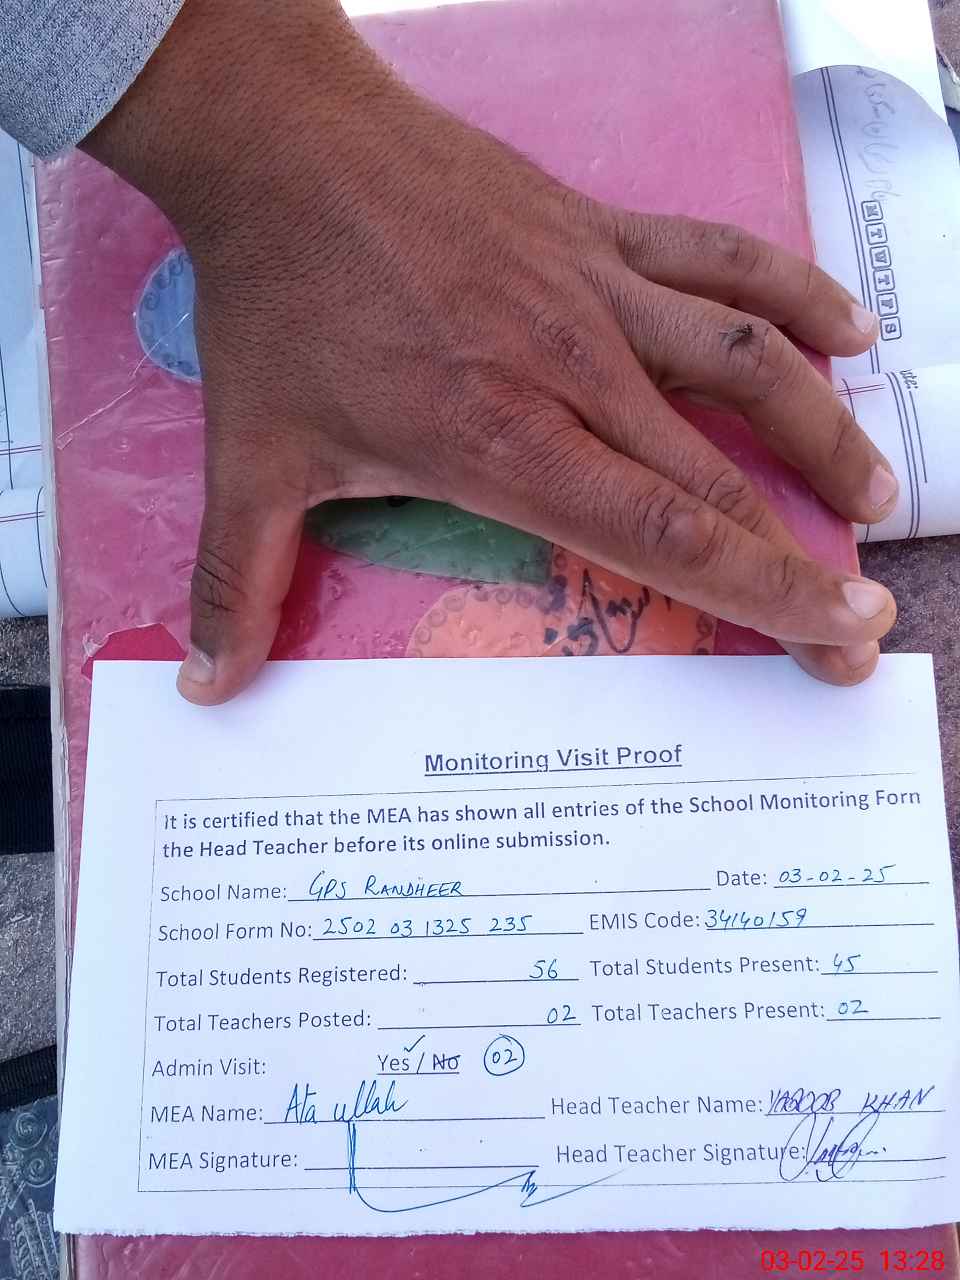 M T W T F S
ate:
Monitoring Visit Proof
It is certified that the MEA has shown all entries of the School Monitoring Form
the Head Teacher before its online submission.
School Name: GPS RANDHEER Date: 03-02-25
School Form No: 2502 03 1325 235 EMIS Code: 34140159
Total Students Registered: 56 Total Students Present: 45
Total Teachers Posted: 02 Total Teachers Present: 02
Admin Visit: Yes / No 02
MEA Name: Ata ullah Head Teacher Name: YAQOOB KHAN
MEA Signature: Head Teacher Signature:
03-02-25 13:28